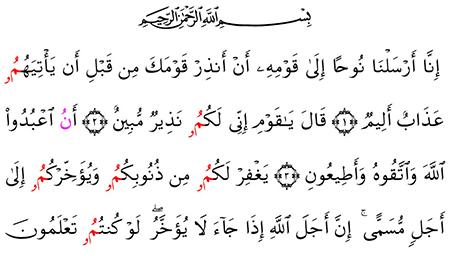 بِسْمِ ٱللَّهِ ٱلرَّحْمَٰنِ ٱلرَّحِيمِ
إِنَّا أَرْسَلْنَا نُوحًا إِلَىٰ قَوْمِهِۦ أَنْ أَنذِرْ قَوْمَكَ مِن قَبْلِ أَن يَأْتِيَهُمُۥ
عَذَابٌ أَلِيمٌ ۝١ قَالَ يَٰقَوْمِ إِنِّى لَكُمُۥ نَذِيرٌ مُّبِينٌ ۝٢ أَنُ ٱعْبُدُوا۟
ٱللَّهَ وَٱتَّقُوهُ وَأَطِيعُونِ ۝٣ يَغْفِرْ لَكُمُۥ مِن ذُنُوبِكُمُۥ وَيُؤَخِّرْكُمُۥ إِلَىٰ
أَجَلٍ مُّسَمًّى ۚ إِنَّ أَجَلَ ٱللَّهِ إِذَا جَآءَ لَا يُؤَخَّرُ ۖ لَوْ كُنتُمُۥ تَعْلَمُونَ